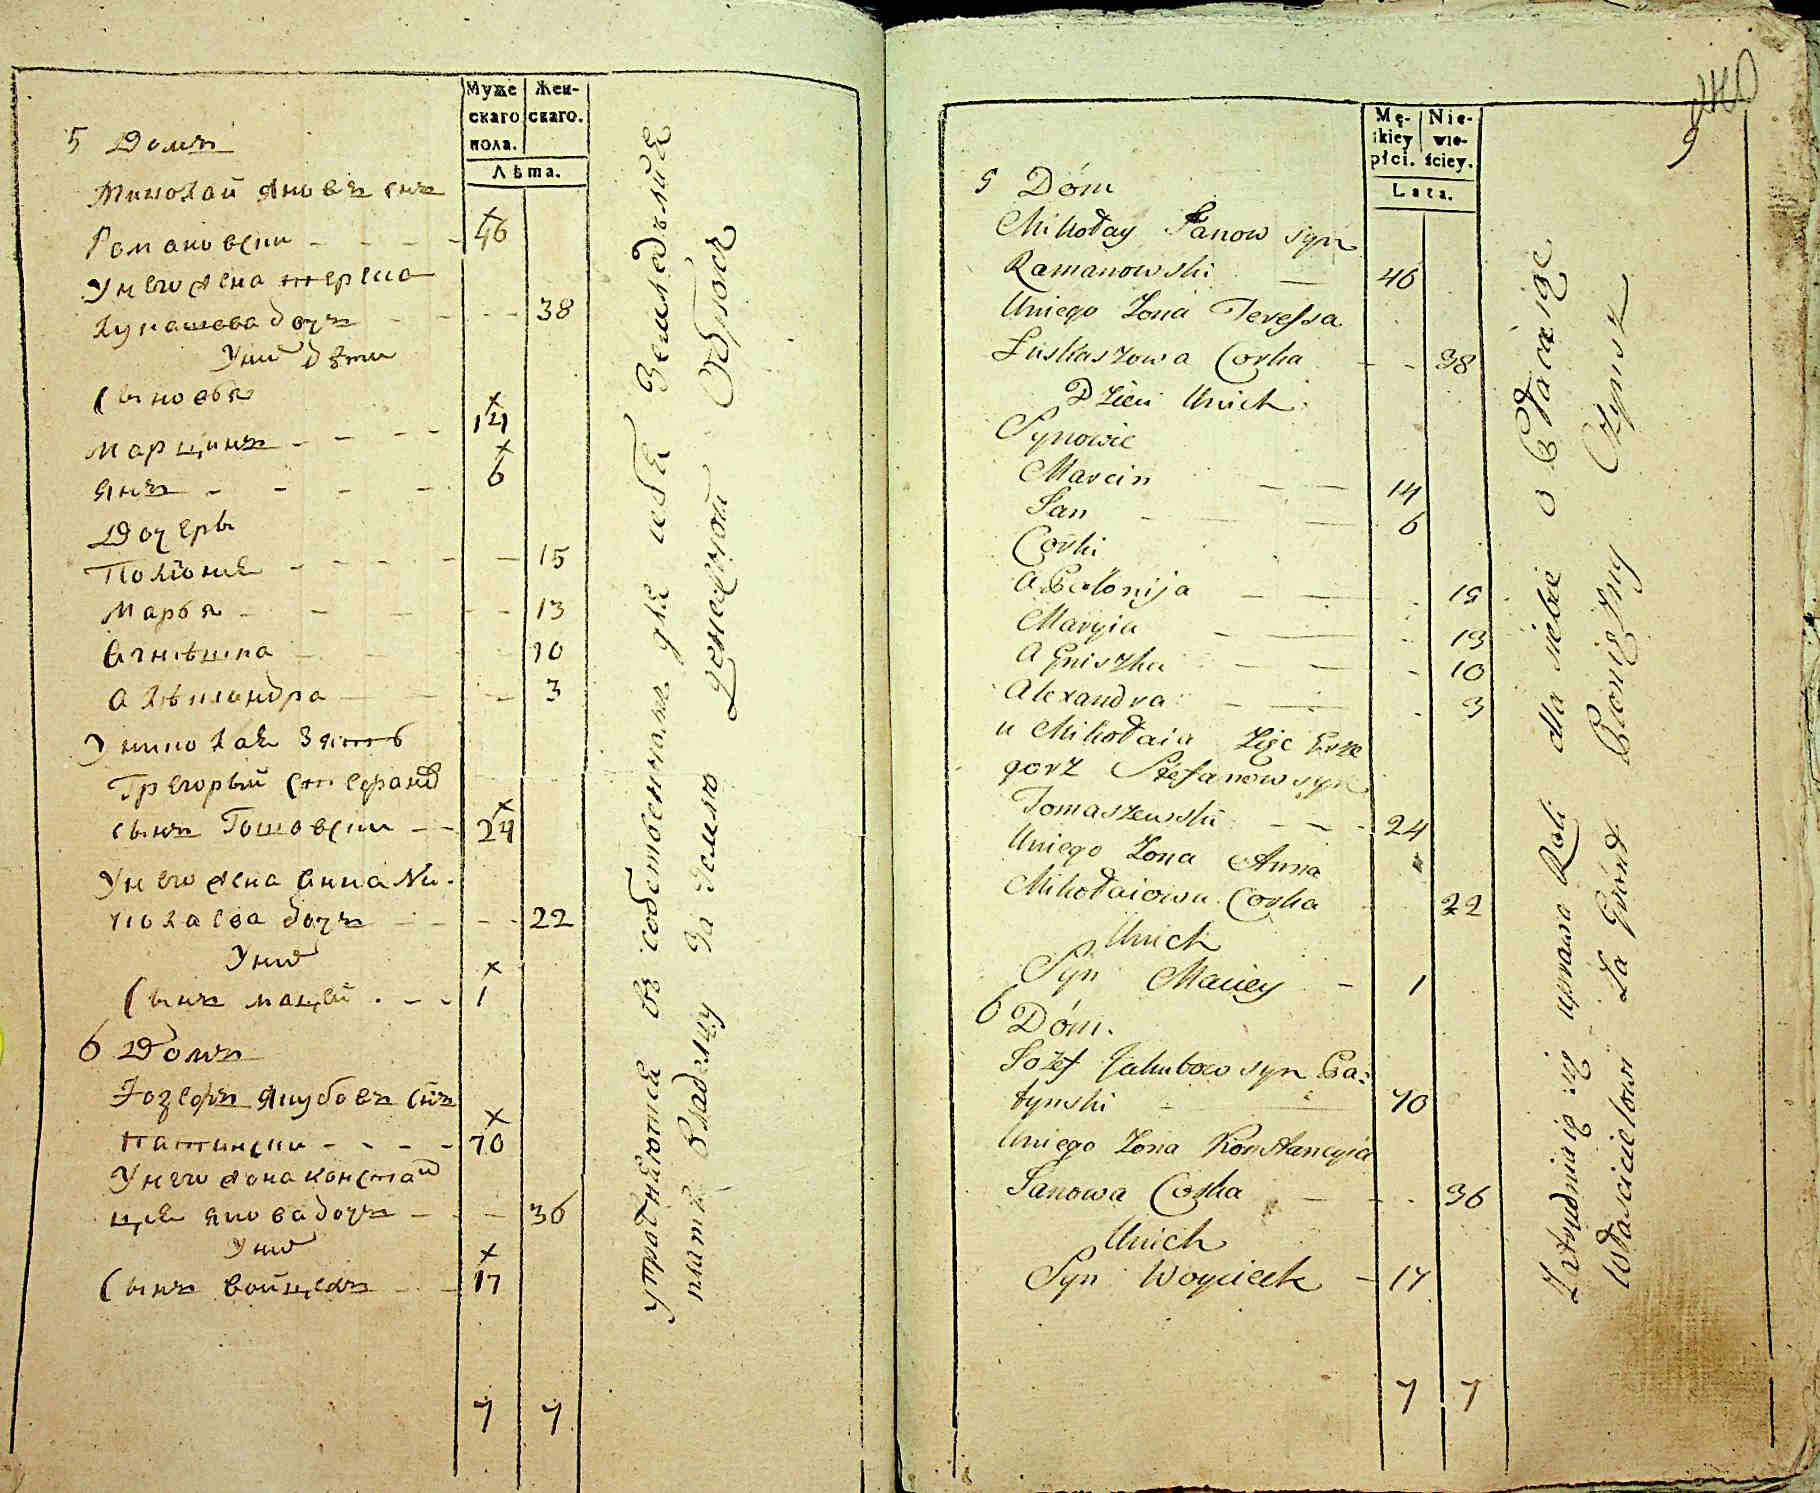 Муже
скаго
пола.
Жен-
скаго.
Лѣта.
5 Домъ
Миколай Яновъ снъ
Романовски - - - - 46
У него жена тереса
лукашова дочъ - - - - 38
У них дѣти
Сыновья
Марцинъ - - - - 14
Янъ - - - - 6
Дочеры
Полонія - - - - - 15
Марья - - - - 13
Агнѣшка 10
Алѣксандра - - - - 3
У миколая Зять
Грегорый Стефанов
сынъ Томашевски - - 24
У него жена Анна Ми-
колаева дочъ - - - - 22
У них
Сынъ мацей - - - 1
6 Домъ
Іозефъ Якубовъ снъ
патынски - - - - 70
У него жона констан
ція янова дочъ - - - 36
У них
Сынъ войцехъ - - - 17
7 7
упражняются въ собственномъ для себя Земледѣлія
платя Владелцу За Землю Денежной Оброкъ
9
Mę-
skiey
płci.
Nie-
wie-
ściey.
Lata.
5 Dóm
Mikołay Janow syn
Ramanowski — 46
Uniego Zona Teressa
Łuskaszowa Corka - - 38
Dzieci Unich
Synowie
Marcin — — 14
Jan — — 6
Corki
Apolonija — — - 15
Maryia - — - 13
Agniszka - — - 10
Alexandra - — - 3
u Mikołaia Zięc Grze
gorz Stefanow syn
Tomaszewski - - - 24
Uniego Zona Anna
Mikołaiowa Corka 22
Unich
Syn Maciey - 1
6 Dóm.
Jozef Jakubow syn Pa:
tynski - — 70
Uniego Zona Konstancyia
Janowa Corka — - - 36
Unich
Syn Woyciech - 17
7 7
Zatrudniaią się uprawą Roli dla siebie opłacaiąc
Włascicielowi Za Grónt Pieniężny Czynsz